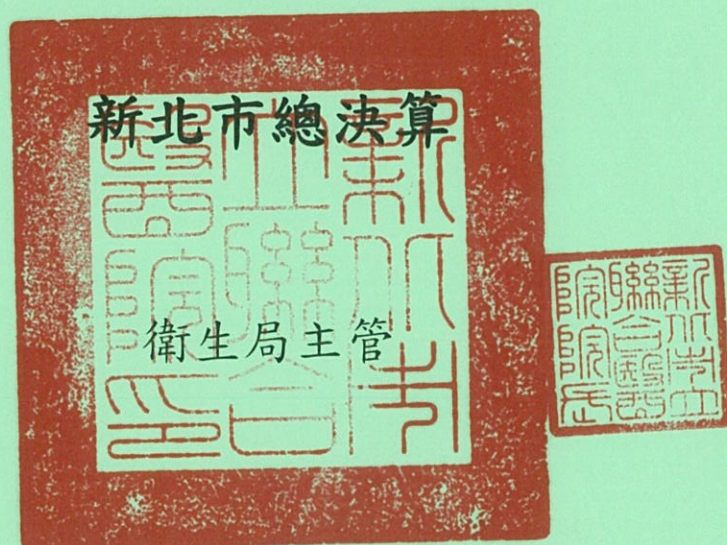 新北市總決算
衛生局主管
新北市
立聯合
醫院印
新北市立
聯合醫
院院長